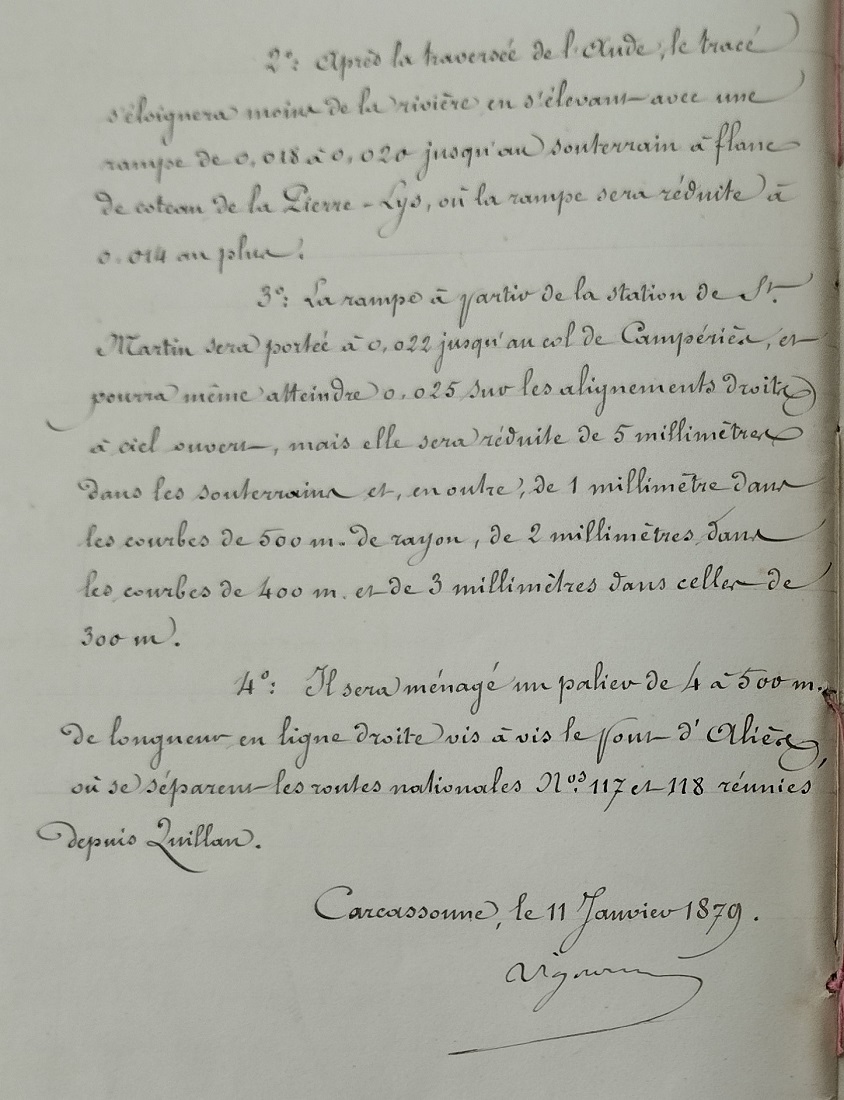 2º: Après la traversée de l'Aude, le tracé
s'éloignera moins de la rivière en s'élevant avec une
rampe de 0,018 à 0,020 jusqu'au souterrain à flanc
de coteau de la Pierre-Lys, où la rampe sera réduite à
0.014 au plus.
3º: La rampe à partir de la station de St.
Martin sera portée à 0,022 jusqu'au col de Campériès, et
pourra même atteindre 0.025 sur les alignements droits
à ciel ouvert, mais elle sera réduite de 5 millimètres
dans les souterrains et, en outre, de 1 millimètre dans
les courbes de 500 m. de rayon, de 2 millimètres dans
les courbes de 400 m. et de 3 millimètres dans celles de
300 m.
4º: Il sera ménagé un palier de 4 à 500 m.
de longueur en ligne droite vis à vis le pont d'Aliès,
où se séparent les routes nationales Nos. 117 et 118 réunies
depuis Quillan.
Carcassonne, le 11 Janvier 1879.